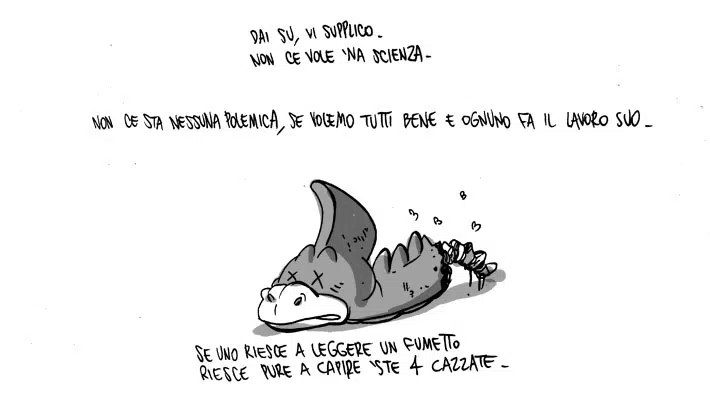 DAI SU, VI SUPPLICO_
NON CE VOLE 'NA SCIENZA_
NON CE STA NESSUNA POLEMICA, SE VOLEMO TUTTI BENE E OGNUNO FA IL LAVORO SUO_
SE UNO RIESCE A LEGGERE UN FUMETTO
RIESCE PURE A CAPIRE 'STE 4 CAZZATE_